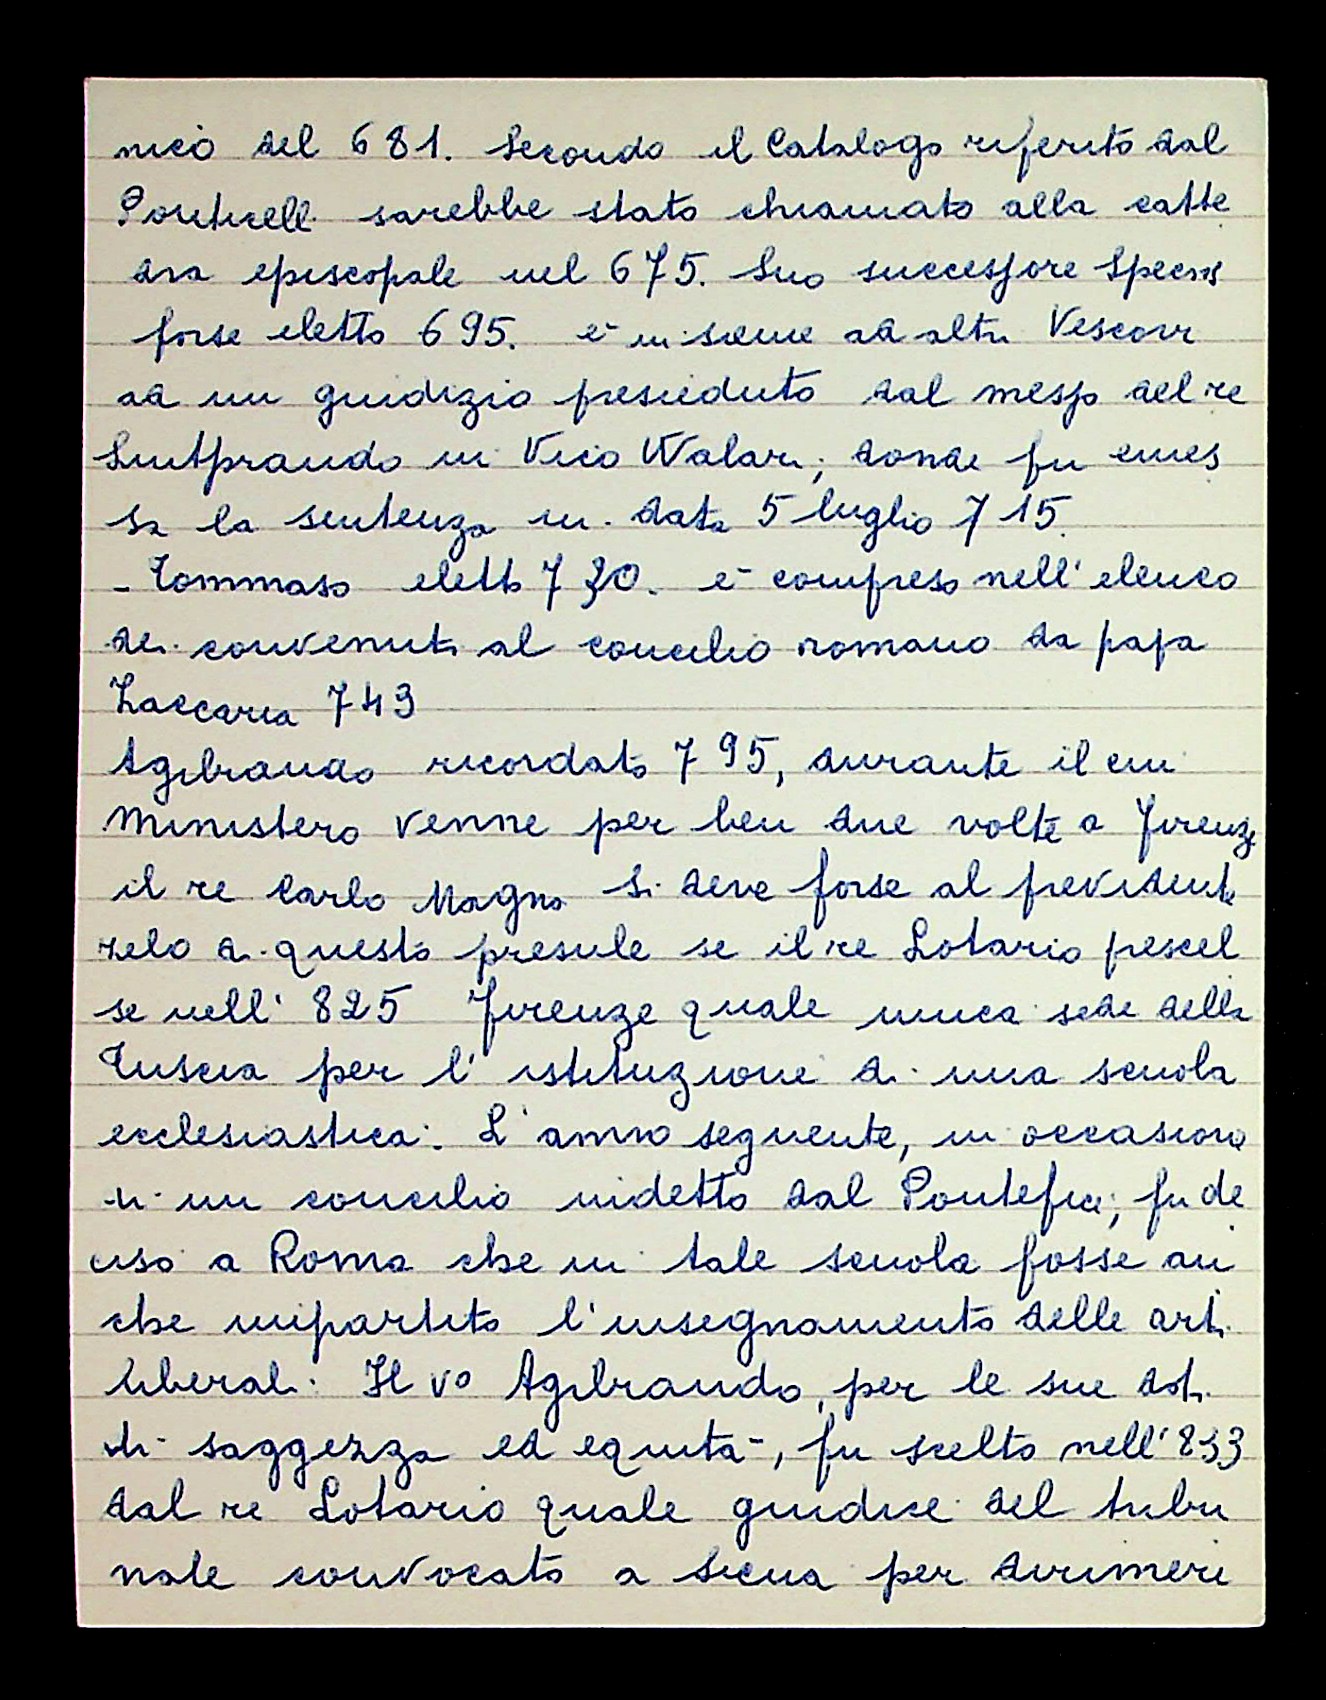 nico del 681. Secondo il Catalogo riferito dal
Ponticelli sarebbe stato chiamato alla catte
dra episcopale nel 675. Suo successore Specios
forse eletto 695. e' insieme ad altri Vescovi
ad un giudizio presieduto dal messo del re
Liutprando in Vico Walari; donde fu emes
sa la sentenza in data 5 luglio 715.
- Tommaso eletto 730. e' compreso nell'elenco
dei convenuti al concilio romano da papa
Zaccaria 743
Agibrando ricordato 795, durante il cui
Ministero venne per ben due volte a Firenze
il re Carlo Magno Si deve forse al previdente
zelo di questo presule se il re Lotario prescel
se nell' 825 Firenze quale unica sede della
Tuscia per l' istituzione di una scuola
ecclesiastica. L' anno seguente, in occasione
di un concilio indetto dal Pontefice, fu de
ciso a Roma che in tale scuola fosse an
che impartito l'insegnamento delle arti
liberali. Il vo Agibrando, per le sue doti
di saggezza ed equita', fu scelto nell' 833
dal re Lotario quale giudice del tribu
nale convocato a Siena per dirimere